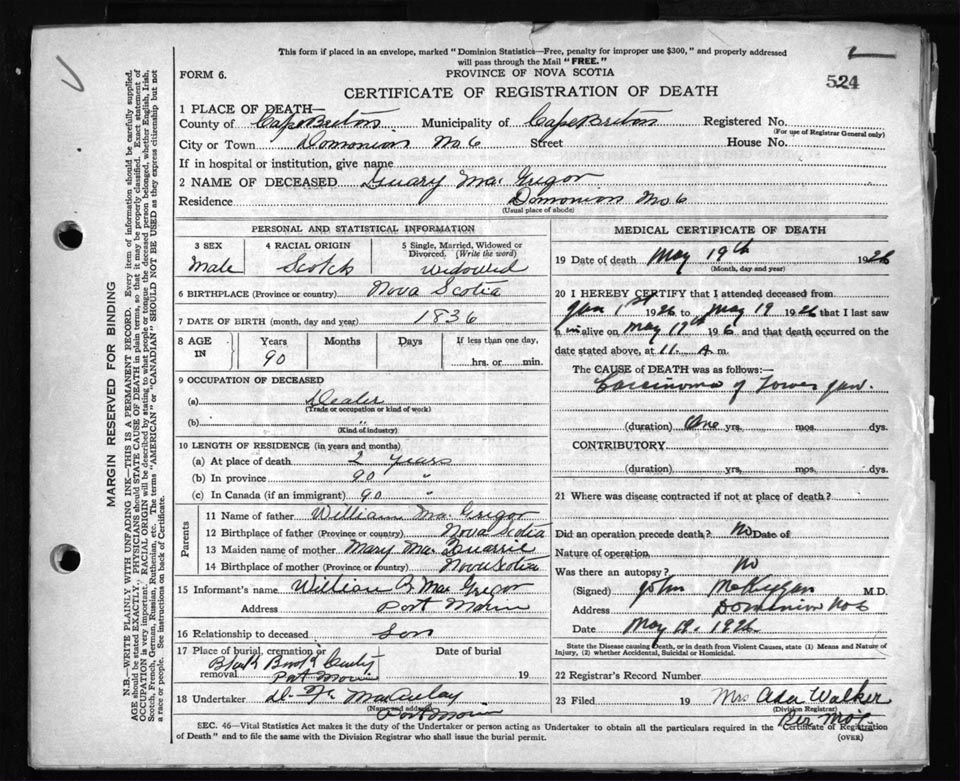 This form if placed in an envelope, marked "Dominion Statistics—Free, penalty for improper use $300," and properly addressed
will pass through the Mail "FREE."
FORM 6.
PROVINCE OF NOVA SCOTIA
524
CERTIFICATE OF REGISTRATION OF DEATH
1 PLACE OF DEATH—
County of Cape Breton Municipality of Cape Breton Registered No.
(For use of Registrar General only)
City or Town Domonion No. 6 Street House No.
If in hospital or institution, give name
2 NAME OF DECEASED Mac Gregor
Residence Domonion No 6
(Usual place of abode)
PERSONAL AND STATISTICAL INFORMATION
3 SEX 4 RACIAL ORIGIN 5 Single, Married, Widowed or
Divorced. (Write the word)
Male Scotch Widowed
6 BIRTHPLACE (Province or country) Nova Scotia
7 DATE OF BIRTH (month, day and year) 1836
8 AGE IN Years Months Days If less than one day,
90 hrs. or min.
9 OCCUPATION OF DECEASED
(a) Dealer
(Trade or occupation or kind of work)
(b) "
(Kind of industry)
10 LENGTH OF RESIDENCE (in years and months)
(a) At place of death 2 years
(b) In province 90 "
(c) In Canada (if an immigrant) 90 "
Parents
11 Name of father William Mac Gregor
12 Birthplace of father (Province or country) Nova Scotia
13 Maiden name of mother Mary Mac Quarrie
14 Birthplace of mother (Province or country) Nova Scotia
15 Informant's name William Mac Gregor
Address Port Morien
16 Relationship to deceased Son
17 Place of burial, cremation or removal Date of burial
Black Brook
Port Morien 19
18 Undertaker MacAulay
(Name and address)
Port Morien
MEDICAL CERTIFICATE OF DEATH
19 Date of death May 19th 1926
(Month, day and year)
20 I HEREBY CERTIFY that I attended deceased from
Jan 1st 1926 to May 19 1926 that I last saw
h im alive on May 1926 and that death occurred on
date stated above, at 11. A m.
The CAUSE of DEATH was as follows:—
Carcinoma of Lower jaw.
(duration) One yrs. mos. dys.
CONTRIBUTORY
(duration) yrs. mos. dys.
21 Where was disease contracted if not at place of death?
Did an operation precede death? No Date of
Nature of operation
Was there an autopsy? No
(Signed) John M.D.
Address Dominion No 6
Date May 19. 1926
State the Disease causing Death, or in death from Violent Causes, state (1) Means and Nature of
Injury, (2) whether Accidental, Suicidal or Homicidal.
22 Registrar's Record Number
23 Filed 19 Mrs Ada Walker
(Division Registrar)
SEC. 46—Vital Statistics Act makes it the duty of the Undertaker or person acting as Undertaker to obtain all the particulars required in the Certificate of Registration
of Death" and to file the same with the Division Registrar who shall issue the burial permit.
(OVER)
MARGIN RESERVED FOR BINDING
N.B.—WRITE PLAINLY WITH UNFADING INK—THIS IS A PERMANENT RECORD. Every item of information should be carefully supplied.
AGE should be stated EXACTLY. PHYSICIANS should STATE CAUSE OF DEATH in plain terms, so that it may be properly classified. Exact statement of
OCCUPATION is very important. RACIAL ORIGIN will be described by stating to what people or tongue the deceased person belonged, whether English, Irish,
Scotch, French, German, Russian, Ruthenian, etc. The terms "AMERICAN" or "CANADIAN" SHOULD NOT BE USED as they express citizenship but not
a race or people. See instructions on back of Certificate.